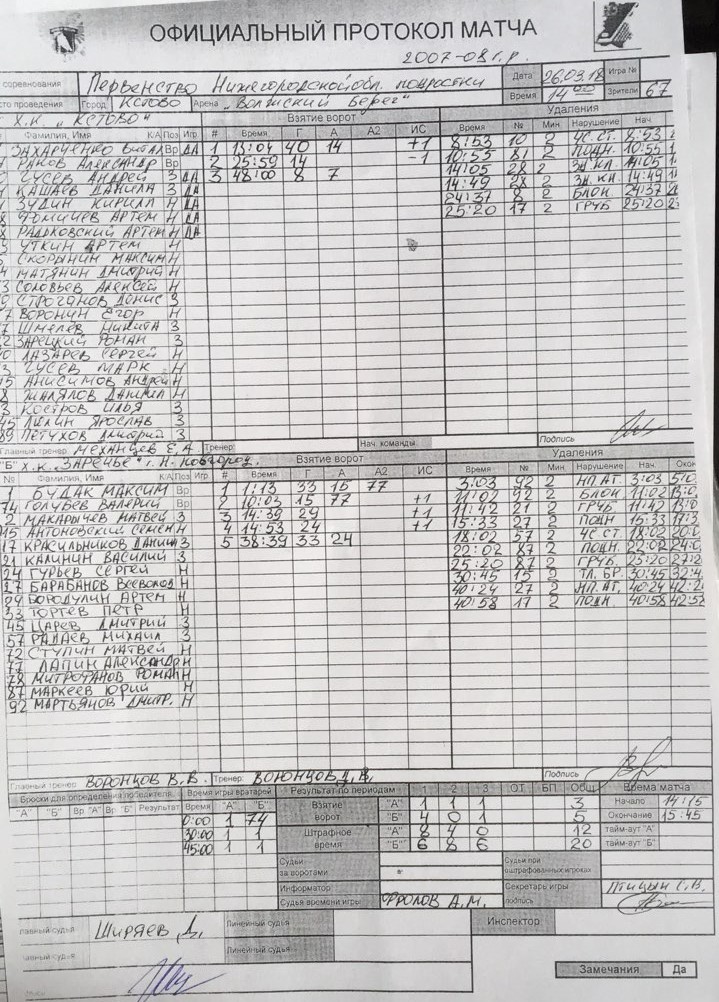 ОФИЦИАЛЬНЫЙ ПРОТОКОЛ МАТЧА
2007-08 г.р.
соревнования Первенство Нижегородской обл. подростки Дата 26.03.18 Игра №
Город Кстово Арена "Волжский берег" Время 14 00 Зрители 67
Х.К. "КСТОВО" Взятие ворот Удаления
Фамилия, Имя К/А Поз Игр # Время Г А А2 ИС Время № Мин Нарушение Нач.
ЗАХАРЧЕНКО Вр ДА 1 13:04 40 14 +1 8:53 10 2 ЧС.СТ. 8:53
РЯКОВ АЛЕКСАНДР Вр 2 25:59 14 -1 10:55 81 2 ПОДН. 10:55
ГУСЕВ АНДРЕЙ З ДА 3 48:00 8 7 14:05 28 2 ЗД.КЛ. 14:05
КАШАЕВ ДАНИЛА З ДА 14:49 28 2 ЗД.КЛ. 14:49
ЗУДИН КИРИЛЛ Н ДА 24:37 8 2 БЛОК. 24:37
ФОМИЧЕВ АРТЕМ Н ДА 25:20 17 2 ГРУБ 25:20
РАДЬКОВСКИЙ АРТЕМ Н ДА
УТКИН АРТЕМ Н
СКОРЫНИН МАКСИМ Н
МАТЯНИН ДМИТРИЙ Н
СОЛОВЬЕВ АЛЕКСЕЙ Н
СТРОГАНОВ ДЕНИС З
ВОРОНИН ЕГОР Н
ШМЕЛЕВ НИКИТА З
ЗАРЕЦКИЙ РОМАН З
ЛАЗАРЕВ СЕРГЕЙ Н
ГУСЕВ МАРК Н
АНИСИМОВ АНДРЕЙ Н
ЖАЛЯЛОВ ДАНИИЛ Н
КОСТРОВ ИЛЬЯ З
ЛИЛИН ЯРОСЛАВ З
ПЕТУХОВ ДМИТРИЙ З
Главный тренер МЕХАНЦЕВ Е.А. Тренер: Нач. команды Подпись
"Б" Х.К. "ЗАРЕЧЬЕ" г. Н. Новгород. Взятие ворот Удаления
№ Фамилия, Имя К/А Поз Игр # Время Г А А2 ИС Время № Мин Нарушение Нач. Окон
1 БУДАК МАКСИМ Вр 1 1:13 33 15 77 3:03 92 2 НП.АТ. 3:03
74 ГОЛУБЕВ ВАЛЕРИЙ Вр 2 10:02 15 77 +1 11:02 92 2 БЛОК. 11:02
2 МАКАРЫЧЕВ МАТВЕЙ З 3 14:39 29 +1 11:42 21 2 ГРУБ. 11:42
15 АНТОНОВСКИЙ СЕМЕН Н 4 14:53 24 +1 15:33 27 2 ПОДН 15:33
17 КРАСИЛЬНИКОВ ДАНИИЛ З 5 38:39 33 24 18:02 57 2 ЧС СТ 18:02
21 КАЛИНИН ВАСИЛИЙ З 22:02 87 2 ПОДН. 22:02
24 ГУРЬЕВ СЕРГЕЙ Н 25:20 87 2 ГРУБ. 25:20
27 БАРАБАНОВ ВСЕВОЛОД Н 30:45 15 2 ТЛ.БР. 30:45
29 БОРОДУЛИН АРТЕМ Н 40:24 27 2 НП.АТ. 40:24
33 ТОРТЕВ ПЕТР Н 40:58 17 2 ПОДН. 40:58
45 ЦАРЕВ ДМИТРИЙ З
57 РАДАЕВ МИХАИЛ З
72 СТУПИН МАТВЕЙ Н
77 ЛАПИН АЛЕКСАНДР Н
78 МИТРОФАНОВ РОМАН Н
87 МАРКЕЕВ ЮРИЙ Н
92 МАРТЬЯНОВ ДМИТР. Н
Главный тренер ВОРОНЦОВ В.В. Тренер: ВОРОНЦОВ Д.В. Подпись
Броски для определения победителя Время игры вратарей Результат по периодам 1 2 3 ОТ БП Общ Время матча
"А" "Б" Вр "А" Вр "Б" Результат Время "А" "Б" Взятие ворот "А" 1 1 1 3 Начало 14:15
0:00 1 74 "Б" 4 0 1 5 Окончание 15:45
30:00 1 1 Штрафное время "А" 8 4 0 12 тайм-аут "А"
45:00 1 1 "Б" 6 8 6 20 тайм-аут "Б"
Судьи за воротами Судьи при оштрафованных игроках
Информатор Секретарь игры ПТИЦЫН С.В.
Судья времени игры ФРОЛОВ А.М. подпись
главный судья ШИРЯЕВ Д. Линейный судья Инспектор
главный судья Линейный судья
Замечания Да